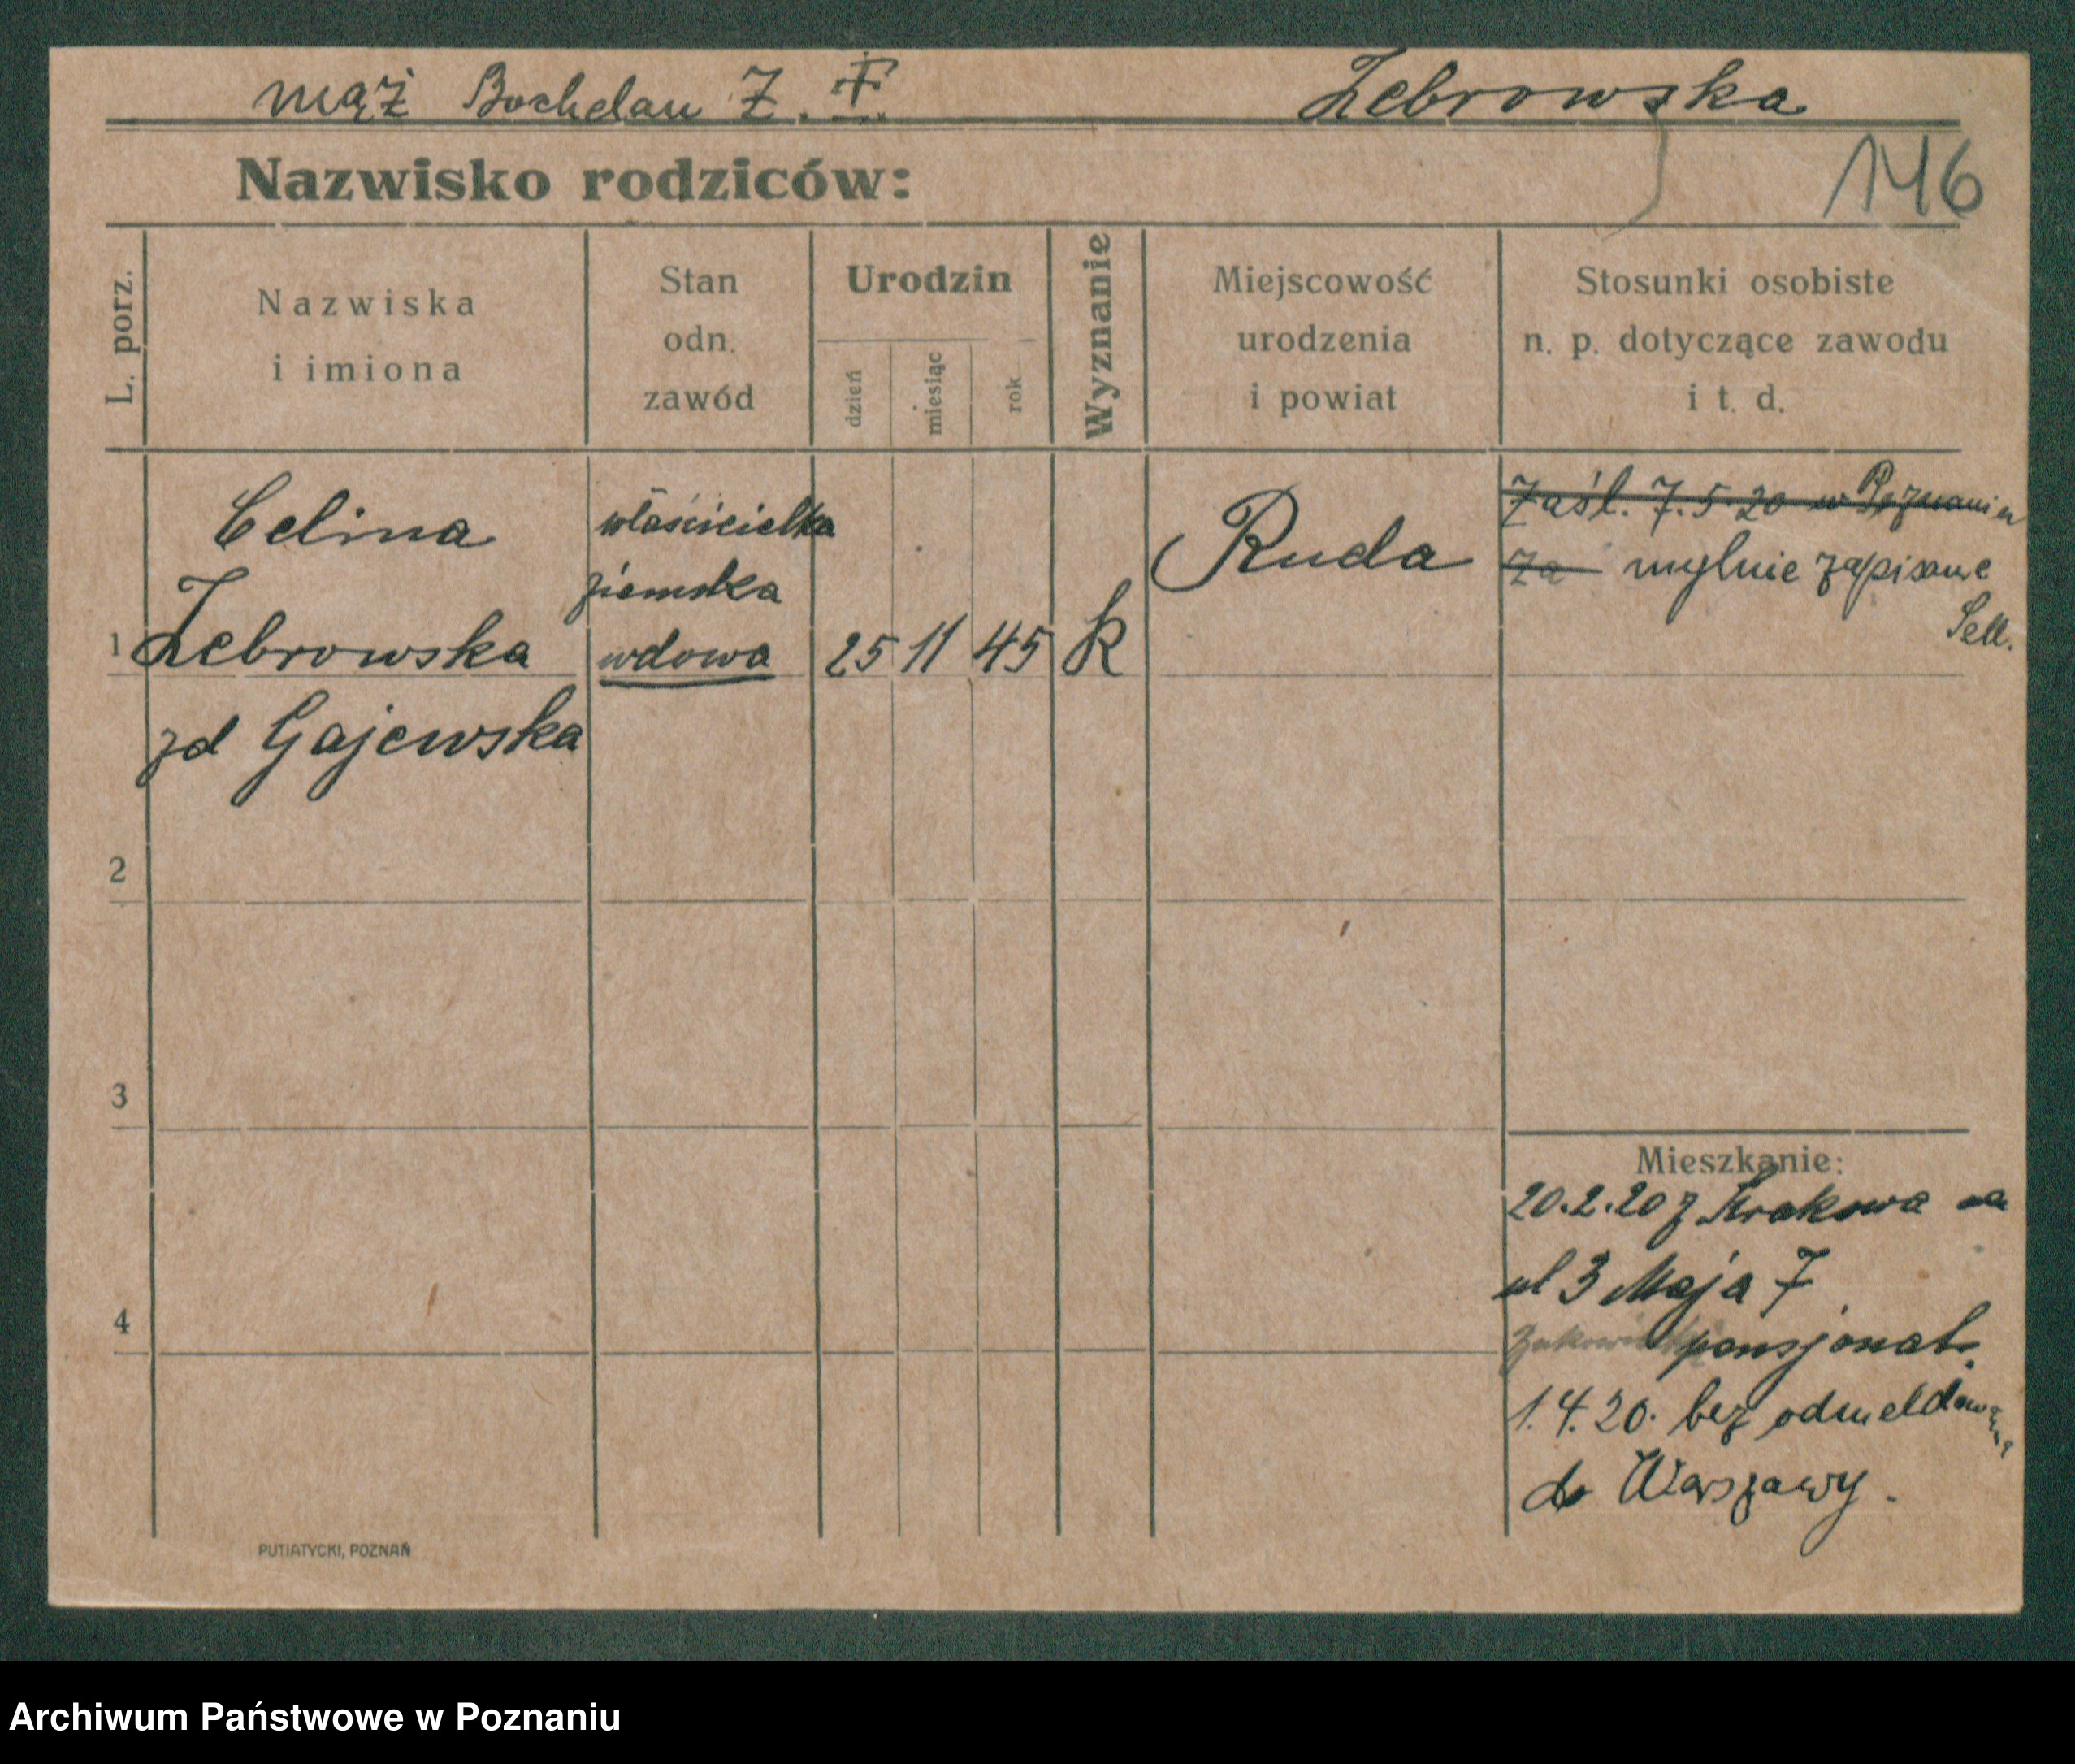 mąż Bochdan Z. Żebrowska
Nazwisko rodziców:
146
L. porz.
Nazwiska
i imiona
Stan
odn.
zawód
Urodzin
dzień
miesiąc
rok
Wyznanie
Miejscowość
urodzenia
i powiat
Stosunki osobiste
n. p. dotyczące zawodu
i t. d.
1
Celina
Żebrowska
zd Gajewska
właścicielka
ziemska
wdowa
25 11 45
k
Ruda
Zaśl. 7.5.20 w Poznaniu
za mylnie zapisane
2
3
4
Mieszkanie:
20.2.20 z Krakowa na
ul 3 Maja 7
pensjonat.
1.4.20. bez odmeldowania
do Warszawy.
PUTIATYCKI, POZNAŃ
Archiwum Państwowe w Poznaniu